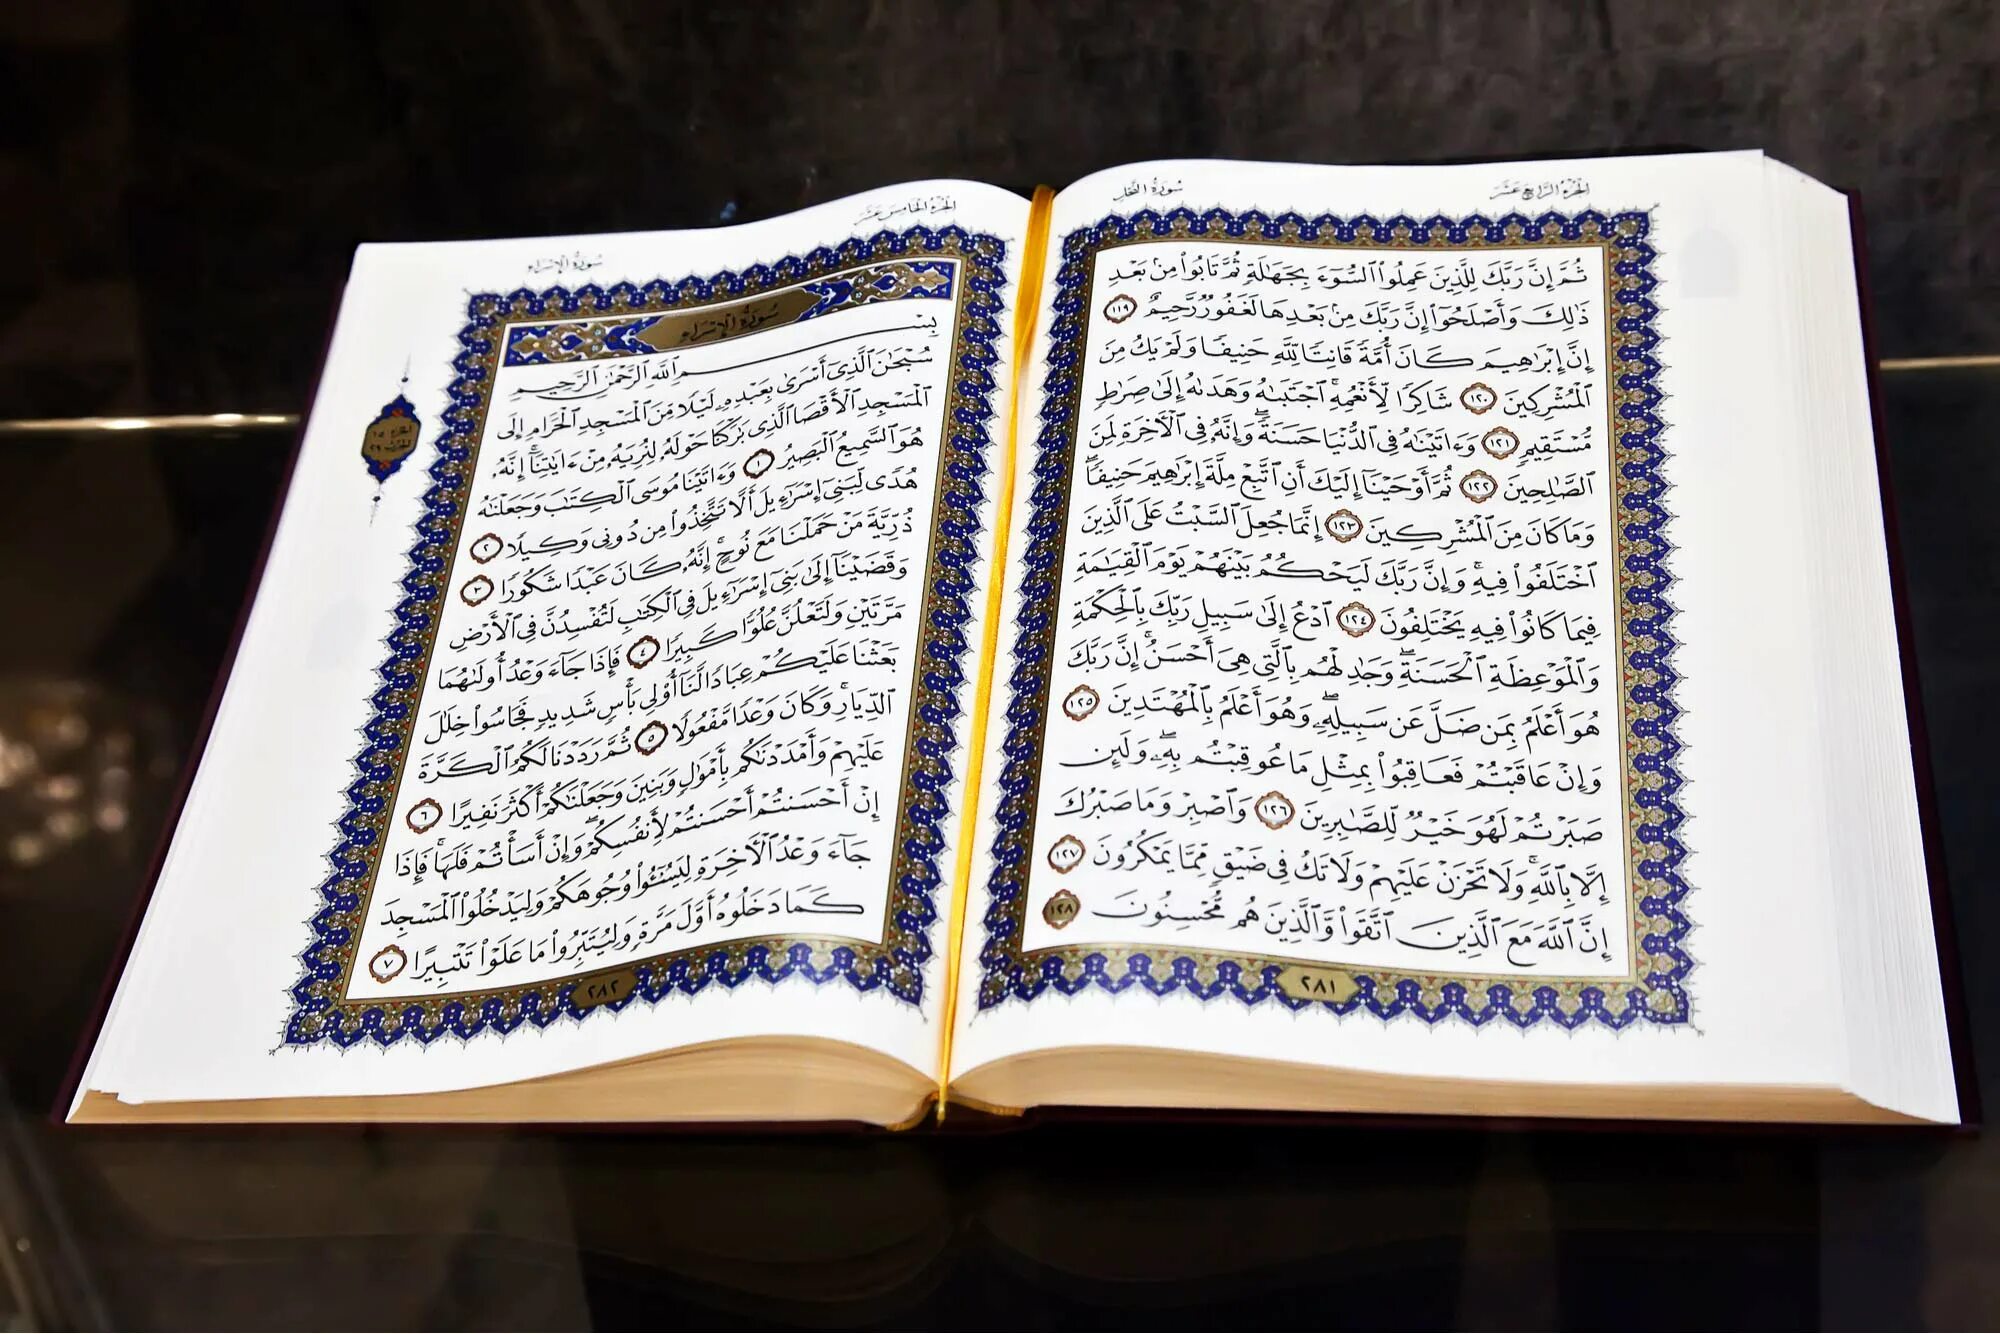 الجزء الرابع عشر
سورة النحل
ثُمَّ إِنَّ رَبَّكَ لِلَّذِينَ عَمِلُوا۟ ٱلسُّوٓءَ بِجَهَٰلَةٍ ثُمَّ تَابُوا۟ مِنۢ بَعْدِ
ذَٰلِكَ وَأَصْلَحُوٓا۟ إِنَّ رَبَّكَ مِنۢ بَعْدِهَا لَغَفُورٌ رَّحِيمٌ ١١٩
إِنَّ إِبْرَٰهِيمَ كَانَ أُمَّةً قَانِتًا لِّلَّهِ حَنِيفًا وَلَمْ يَكُ مِنَ
ٱلْمُشْرِكِينَ ١٢٠ شَاكِرًا لِّأَنْعُمِهِ ۚ ٱجْتَبَىٰهُ وَهَدَىٰهُ إِلَىٰ صِرَٰطٍ
مُّسْتَقِيمٍ ١٢١ وَءَاتَيْنَٰهُ فِى ٱلدُّنْيَا حَسَنَةً ۖ وَإِنَّهُۥ فِى ٱلْءَاخِرَةِ لَمِنَ
ٱلصَّٰلِحِينَ ١٢٢ ثُمَّ أَوْحَيْنَآ إِلَيْكَ أَنِ ٱتَّبِعْ مِلَّةَ إِبْرَٰهِيمَ حَنِيفًا ۖ
وَمَا كَانَ مِنَ ٱلْمُشْرِكِينَ ١٢٣ إِنَّمَا جُعِلَ ٱلسَّبْتُ عَلَى ٱلَّذِينَ
ٱخْتَلَفُوا۟ فِيهِ ۚ وَإِنَّ رَبَّكَ لَيَحْكُمُ بَيْنَهُمْ يَوْمَ ٱلْقِيَٰمَةِ
فِيمَا كَانُوا۟ فِيهِ يَخْتَلِفُونَ ١٢٤ ٱدْعُ إِلَىٰ سَبِيلِ رَبِّكَ بِٱلْحِكْمَةِ
وَٱلْمَوْعِظَةِ ٱلْحَسَنَةِ ۖ وَجَٰدِلْهُم بِٱلَّتِى هِىَ أَحْسَنُ ۚ إِنَّ رَبَّكَ
هُوَ أَعْلَمُ بِمَن ضَلَّ عَن سَبِيلِهِۦ ۖ وَهُوَ أَعْلَمُ بِٱلْمُهْتَدِينَ ١٢٥
وَإِنْ عَاقَبْتُمْ فَعَاقِبُوا۟ بِمِثْلِ مَا عُوقِبْتُم بِهِۦ ۖ وَلَئِن
صَبَرْتُمْ لَهُوَ خَيْرٌ لِّلصَّٰبِرِينَ ١٢٦ وَٱصْبِرْ وَمَا صَبْرُكَ
إِلَّا بِٱللَّهِ ۚ وَلَا تَحْزَنْ عَلَيْهِمْ وَلَا تَكُ فِى ضَيْقٍ مِّمَّا يَمْكُرُونَ ١٢٧
إِنَّ ٱللَّهَ مَعَ ٱلَّذِينَ ٱتَّقَوا۟ وَّٱلَّذِينَ هُم مُّحْسِنُونَ ١٢٨
٢٨١
الجزء الخامس عشر
سورة الإسراء
سورة الإسراء
بِسْمِ ٱللَّهِ ٱلرَّحْمَٰنِ ٱلرَّحِيمِ
سُبْحَٰنَ ٱلَّذِىٓ أَسْرَىٰ بِعَبْدِهِۦ لَيْلًا مِّنَ ٱلْمَسْجِدِ ٱلْحَرَامِ إِلَى
ٱلْمَسْجِدِ ٱلْأَقْصَا ٱلَّذِى بَٰرَكْنَا حَوْلَهُۥ لِنُرِيَهُۥ مِنْ ءَايَٰتِنَآ ۚ إِنَّهُۥ
هُوَ ٱلسَّمِيعُ ٱلْبَصِيرُ ١ وَءَاتَيْنَا مُوسَى ٱلْكِتَٰبَ وَجَعَلْنَٰهُ
هُدًى لِّبَنِىٓ إِسْرَٰٓءِيلَ أَلَّا تَتَّخِذُوا۟ مِن دُونِى وَكِيلًا ٢
ذُرِّيَّةَ مَنْ حَمَلْنَا مَعَ نُوحٍ ۚ إِنَّهُۥ كَانَ عَبْدًا شَكُورًا ٣
وَقَضَيْنَآ إِلَىٰ بَنِىٓ إِسْرَٰٓءِيلَ فِى ٱلْكِتَٰبِ لَتُفْسِدُنَّ فِى ٱلْأَرْضِ
مَرَّتَيْنِ وَلَتَعْلُنَّ عُلُوًّا كَبِيرًا ٤ فَإِذَا جَآءَ وَعْدُ أُولَىٰهُمَا
بَعَثْنَا عَلَيْكُمْ عِبَادًا لَّنَآ أُو۟لِى بَأْسٍ شَدِيدٍ فَجَاسُوا۟ خِلَٰلَ
ٱلدِّيَارِ ۚ وَكَانَ وَعْدًا مَّفْعُولًا ٥ ثُمَّ رَدَدْنَا لَكُمُ ٱلْكَرَّةَ
عَلَيْهِمْ وَأَمْدَدْنَٰكُم بِأَمْوَٰلٍ وَبَنِينَ وَجَعَلْنَٰكُمْ أَكْثَرَ نَفِيرًا ٦
إِنْ أَحْسَنتُمْ أَحْسَنتُمْ لِأَنفُسِكُمْ ۖ وَإِنْ أَسَأْتُمْ فَلَهَا ۚ فَإِذَا
جَآءَ وَعْدُ ٱلْءَاخِرَةِ لِيَسُۥٓـُٔوا۟ وُجُوهَكُمْ وَلِيَدْخُلُوا۟ ٱلْمَسْجِدَ
كَمَا دَخَلُوهُ أَوَّلَ مَرَّةٍ وَلِيُتَبِّرُوا۟ مَا عَلَوْا۟ تَتْبِيرًا ٧
٢٨٢
الجزء ١٥
الحزب ٢٩